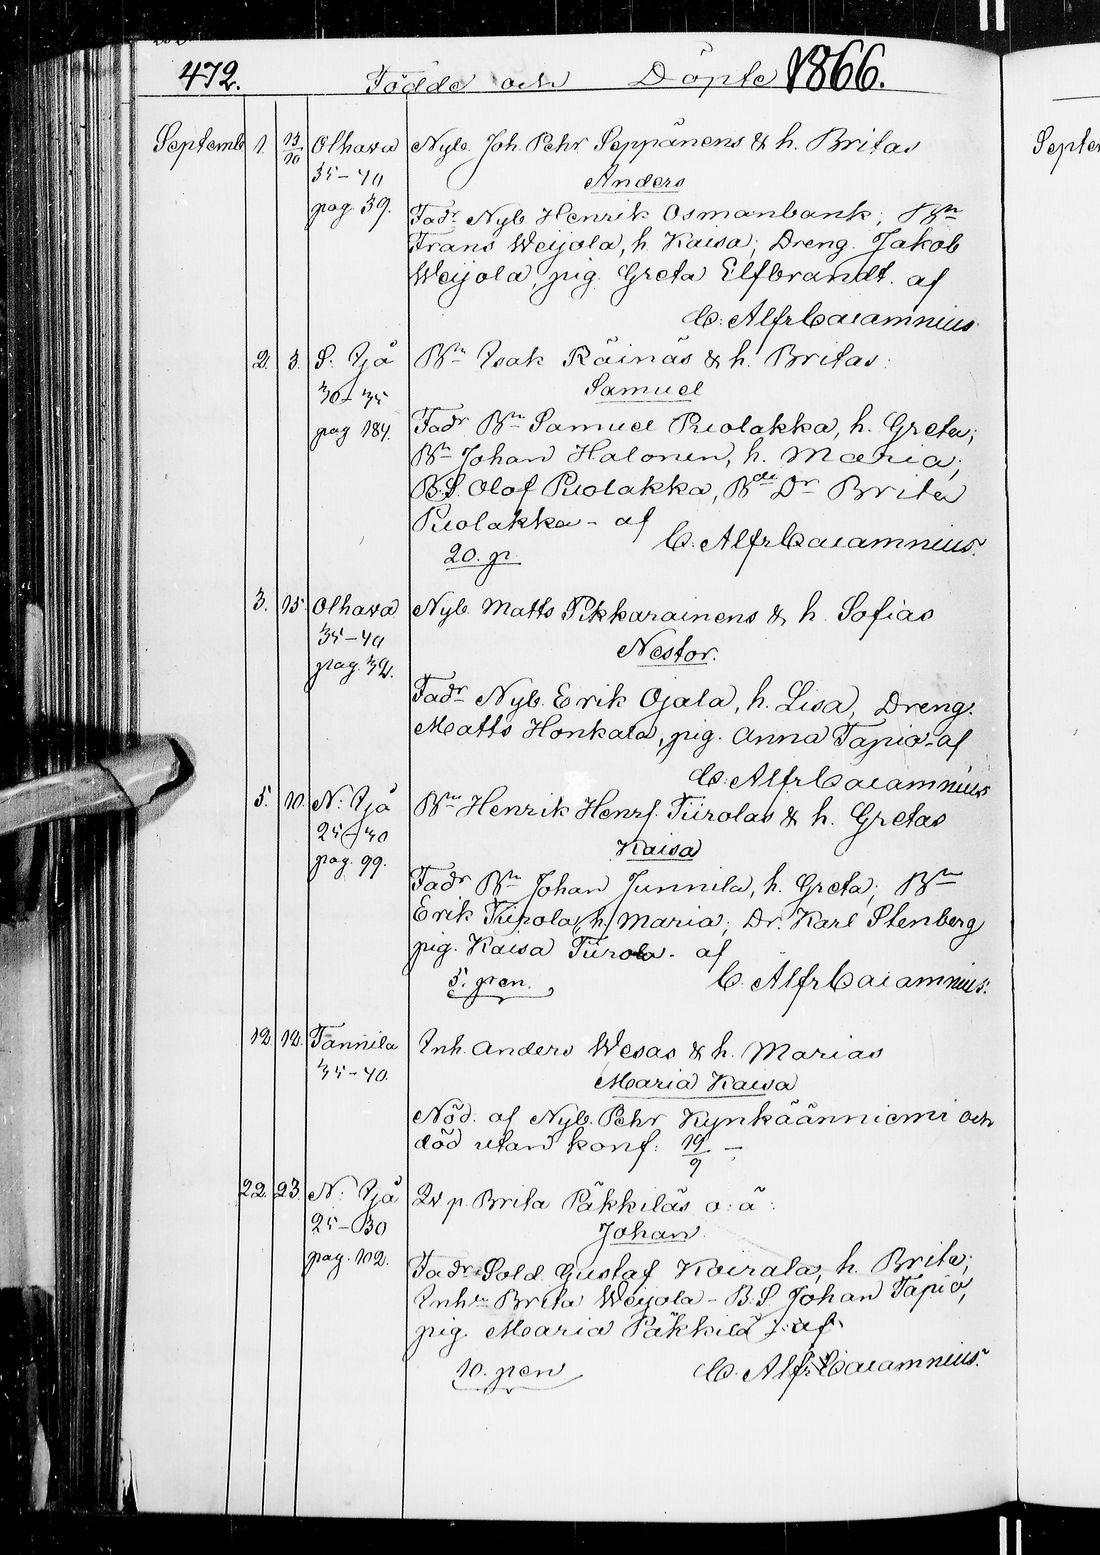 472. Födde och Döpte 1866.
Septemb 1. 13/10 Olhava Nyb. Joh. Pehr Seppänens & h. Britas
35-40 Anders
pag 39. Fadr Nyb Henrik Osmanbank; Bn
Frans Weijola, h. Kaisa; Dreng. Jakob
Weijola, pig. Greta Elfbrandt. af
C. Alfr Calamnius
2. 3. S. Ijå Bn Isak Räinäs & h. Britas:
30-35 Samuel
pag 184. Fadr Bn Samuel Puolakka, h. Greta;
Bn Johan Halonen, h. Maria;
B.S. Olof Puolakka, Bde Dr Brita
Puolakka - af
20. p. C. Alfr Calamnius.
3. 15. Olhava Nyb. Matts Pikkarainens & h. Sofias
35-40 Nestor.
pag. 32. Fadr Nyb. Erik Ojala, h. Lisa, Dreng.
Matts Honkala, pig. Anna Tapio - af
C. Alfr Calamnius
5. 10. N: Ijå Bn Henrik Henrs. Tiirolas & h. Gretas
25-30 Kaisa
pag. 99. Fadr Bn Johan Junnila, h. Greta; Bn
Erik Tiirola, h. Maria; Dr. Karl Stenberg
pig. Kaisa Tiirola - af
5. pen. C. Alfr Calamnius.
12 12. Tannila Inh. Anders Wesas & h. Marias
35-40. Maria Kaisa
Nöd. af Nyb. Pehr Kynkäänniemi och
död utan konf: 19/9 -
22. 23. N: Ijå Qv p. Brita Päkkiläs o: ä:
25-30 Johan.
pag. 102. Fadr Sold. Gustaf Koirala, h. Brita;
Inhn Brita Weijola - B.S Johan Tapio,
pig. Maria Päkkilä - af
10. pen C. Alfr Calamnius.
Septem